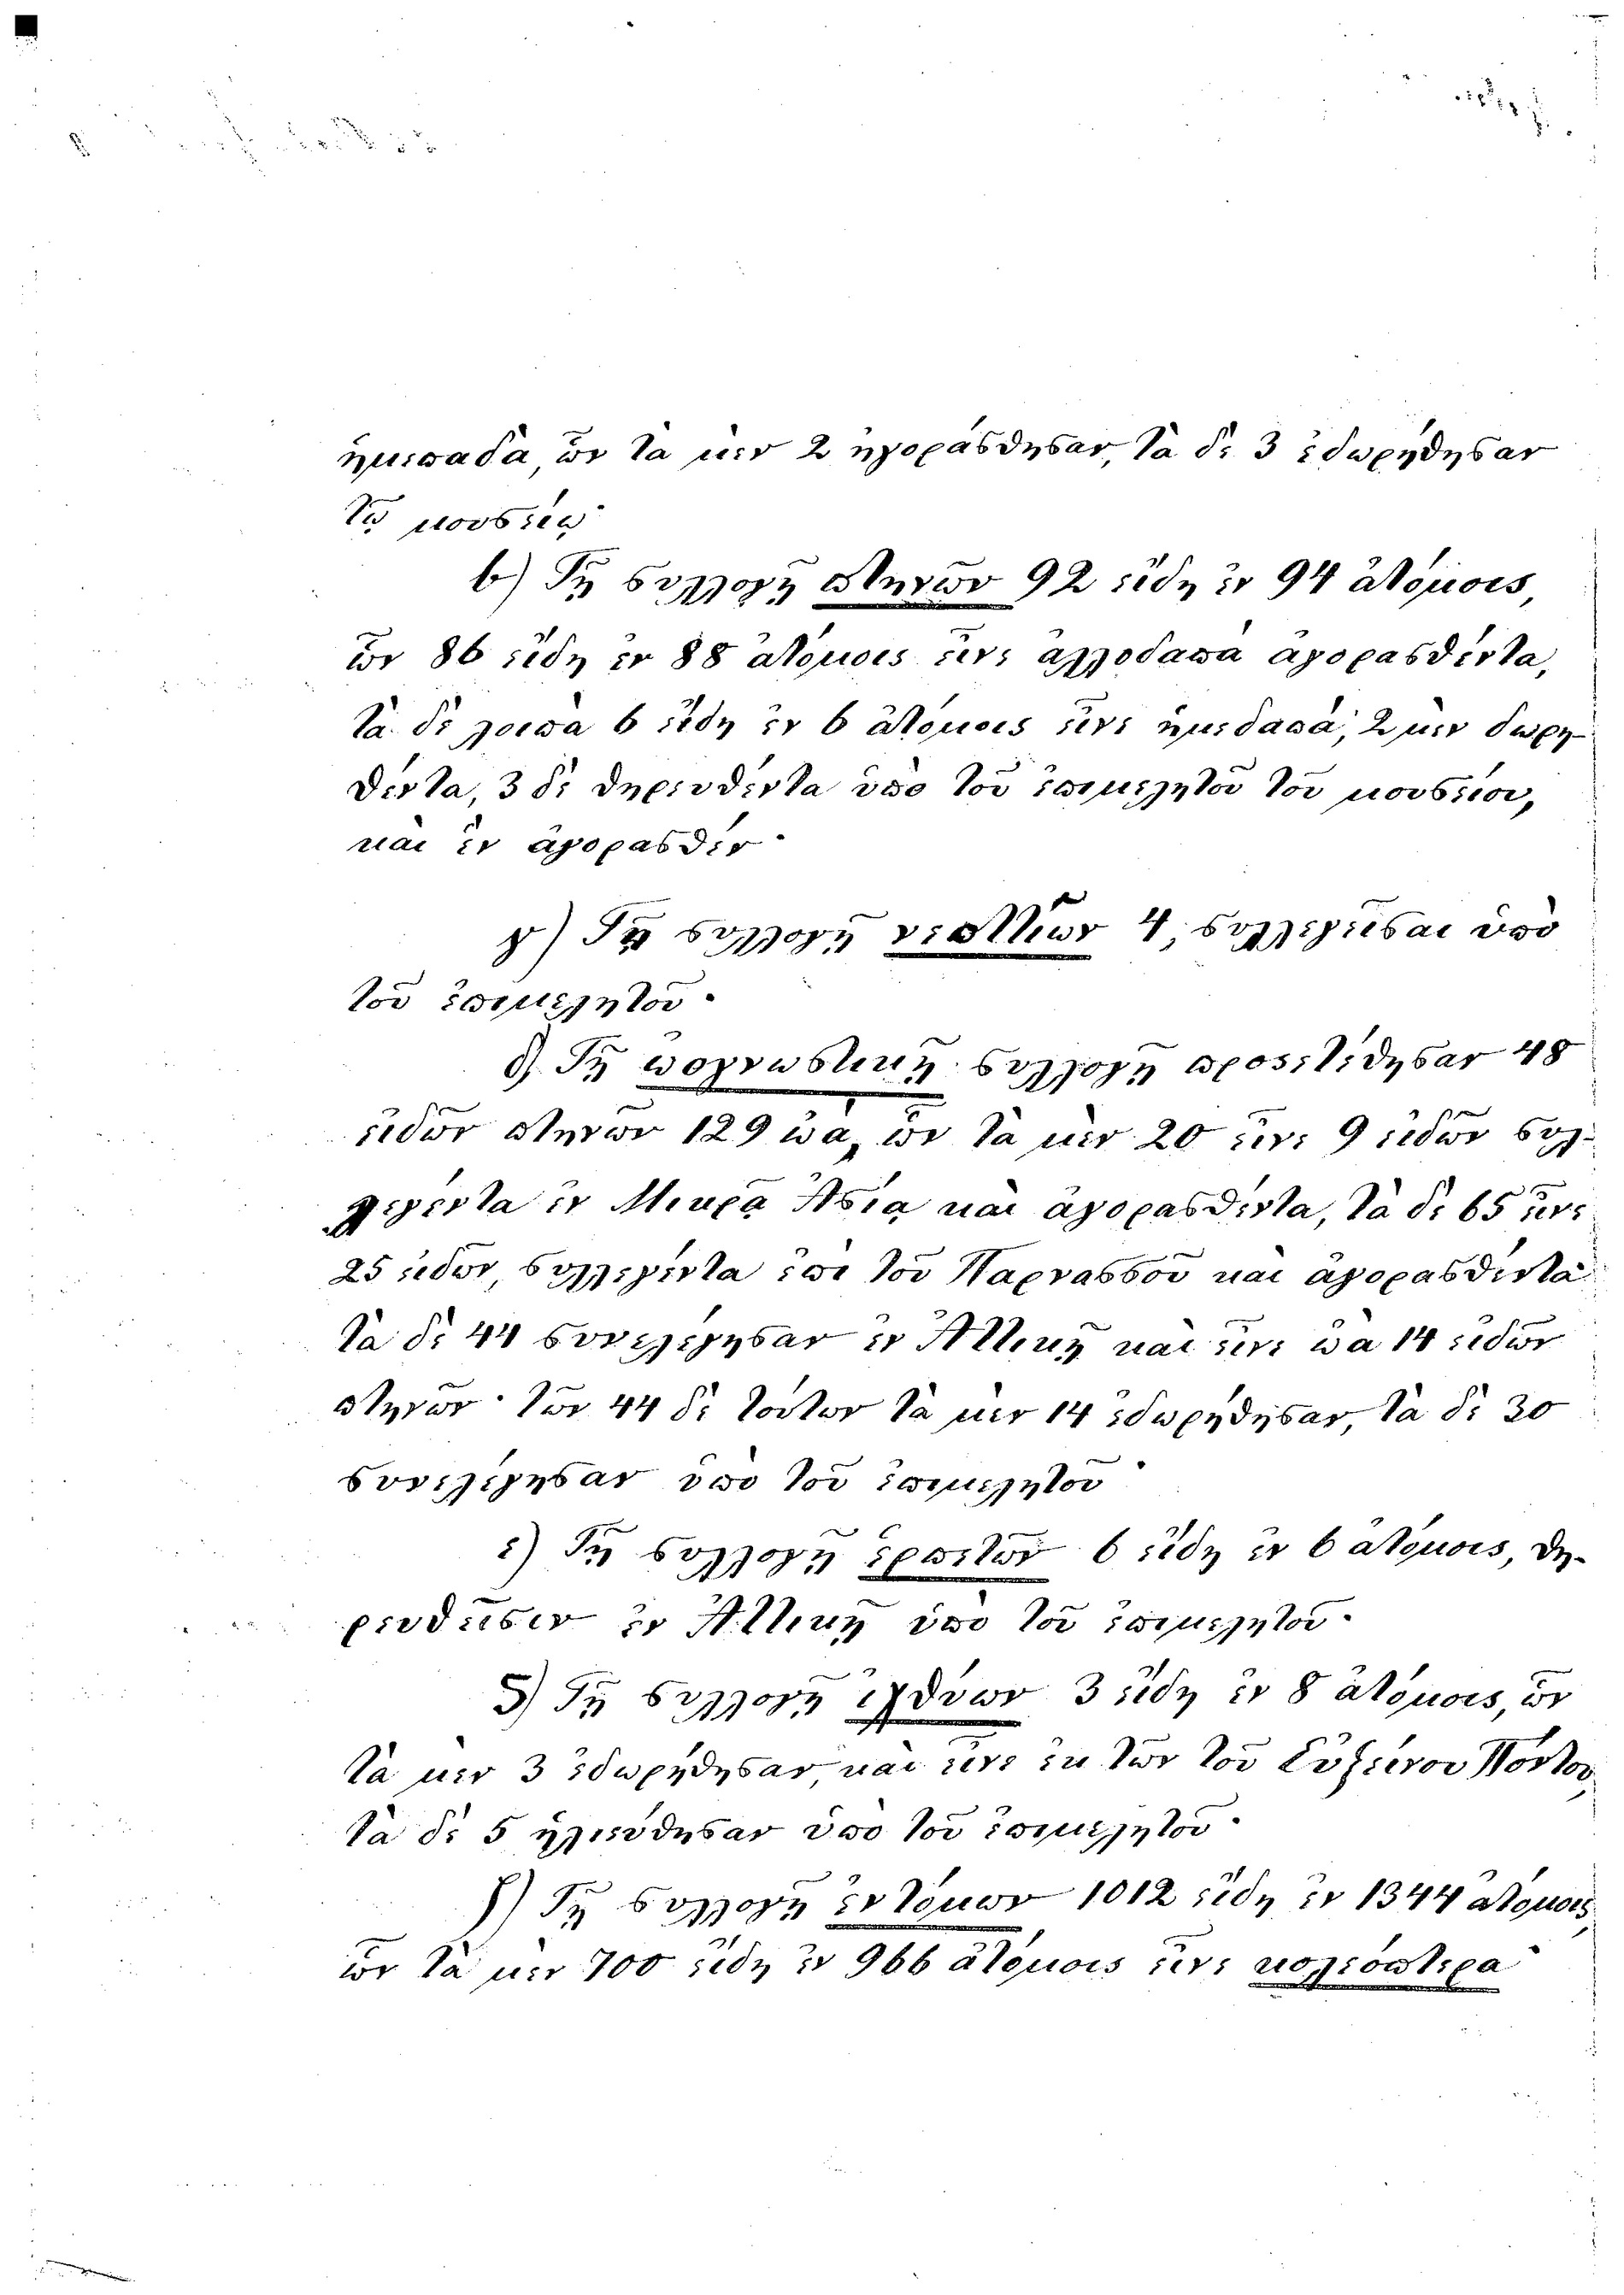 ἡμεδαπά, ὧν τὰ μὲν 2 ἠγοράσθησαν, τὰ δὲ 3 ἐδωρήθησαν
τῷ μουσείῳ·
β) Τῇ συλλογῇ πτηνῶν 92 εἴδη ἐν 94 ἀτόμοις,
ὧν 86 εἴδη ἐν 88 ἀτόμοις εἶνε ἀλλοδαπὰ ἀγορασθέντα,
τὰ δὲ λοιπὰ 6 εἴδη ἐν 6 ἀτόμοις εἶνε ἡμεδαπά, 2 μὲν δωρη-
θέντα, 3 δὲ θηρευθέντα ὑπὸ τοῦ ἐπιμελητοῦ τοῦ μουσείου,
καὶ ἓν ἀγορασθέν·
γ) Τῇ συλλογῇ νεοττιῶν 4, συλλεγεῖσαι ὑπὸ
τοῦ ἐπιμελητοῦ·
δ) Τῇ ὠολογιστικῇ συλλογῇ προσετέθησαν 48
εἰδῶν πτηνῶν 129 ὠά, ὧν τὰ μὲν 20 εἶνε 9 εἰδῶν συλ-
λεγέντα ἐν Μικρᾷ Ἀσίᾳ καὶ ἀγορασθέντα, τὰ δὲ 65 εἶνε
25 εἰδῶν, συλλεγέντα ἐπὶ τοῦ Παρνασσοῦ καὶ ἀγορασθέντα
τὰ δὲ 44 συνελέγησαν ἐν Ἀττικῇ καὶ εἶνε ὠὰ 14 εἰδῶν
πτηνῶν· τῶν 44 δὲ τούτων τὰ μὲν 14 ἐδωρήθησαν, τὰ δὲ 30
συνελέγησαν ὑπὸ τοῦ ἐπιμελητοῦ·
ε) Τῇ συλλογῇ ἑρπετῶν 6 εἴδη ἐν 6 ἀτόμοις, θη-
ρευθεῖσιν ἐν Ἀττικῇ ὑπὸ τοῦ ἐπιμελητοῦ·
ς) Τῇ συλλογῇ ἰχθύων 3 εἴδη ἐν 8 ἀτόμοις, ὧν
τὰ μὲν 3 ἐδωρήθησαν, καὶ εἶνε ἐκ τῶν τοῦ Εὐξείνου Πόντου,
τὰ δὲ 5 ἡλιεύθησαν ὑπὸ τοῦ ἐπιμελητοῦ·
ζ) Τῇ συλλογῇ ἐντόμων 1012 εἴδη ἐν 1344 ἀτόμοις,
ὧν τὰ μὲν 700 εἴδη ἐν 966 ἀτόμοις εἶνε κολεόπτερα